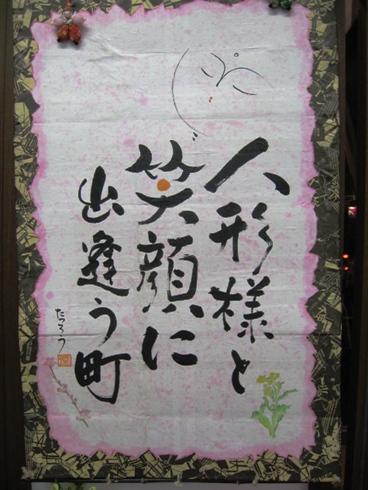 人形様と
笑顔に
出逢う町
たつろう